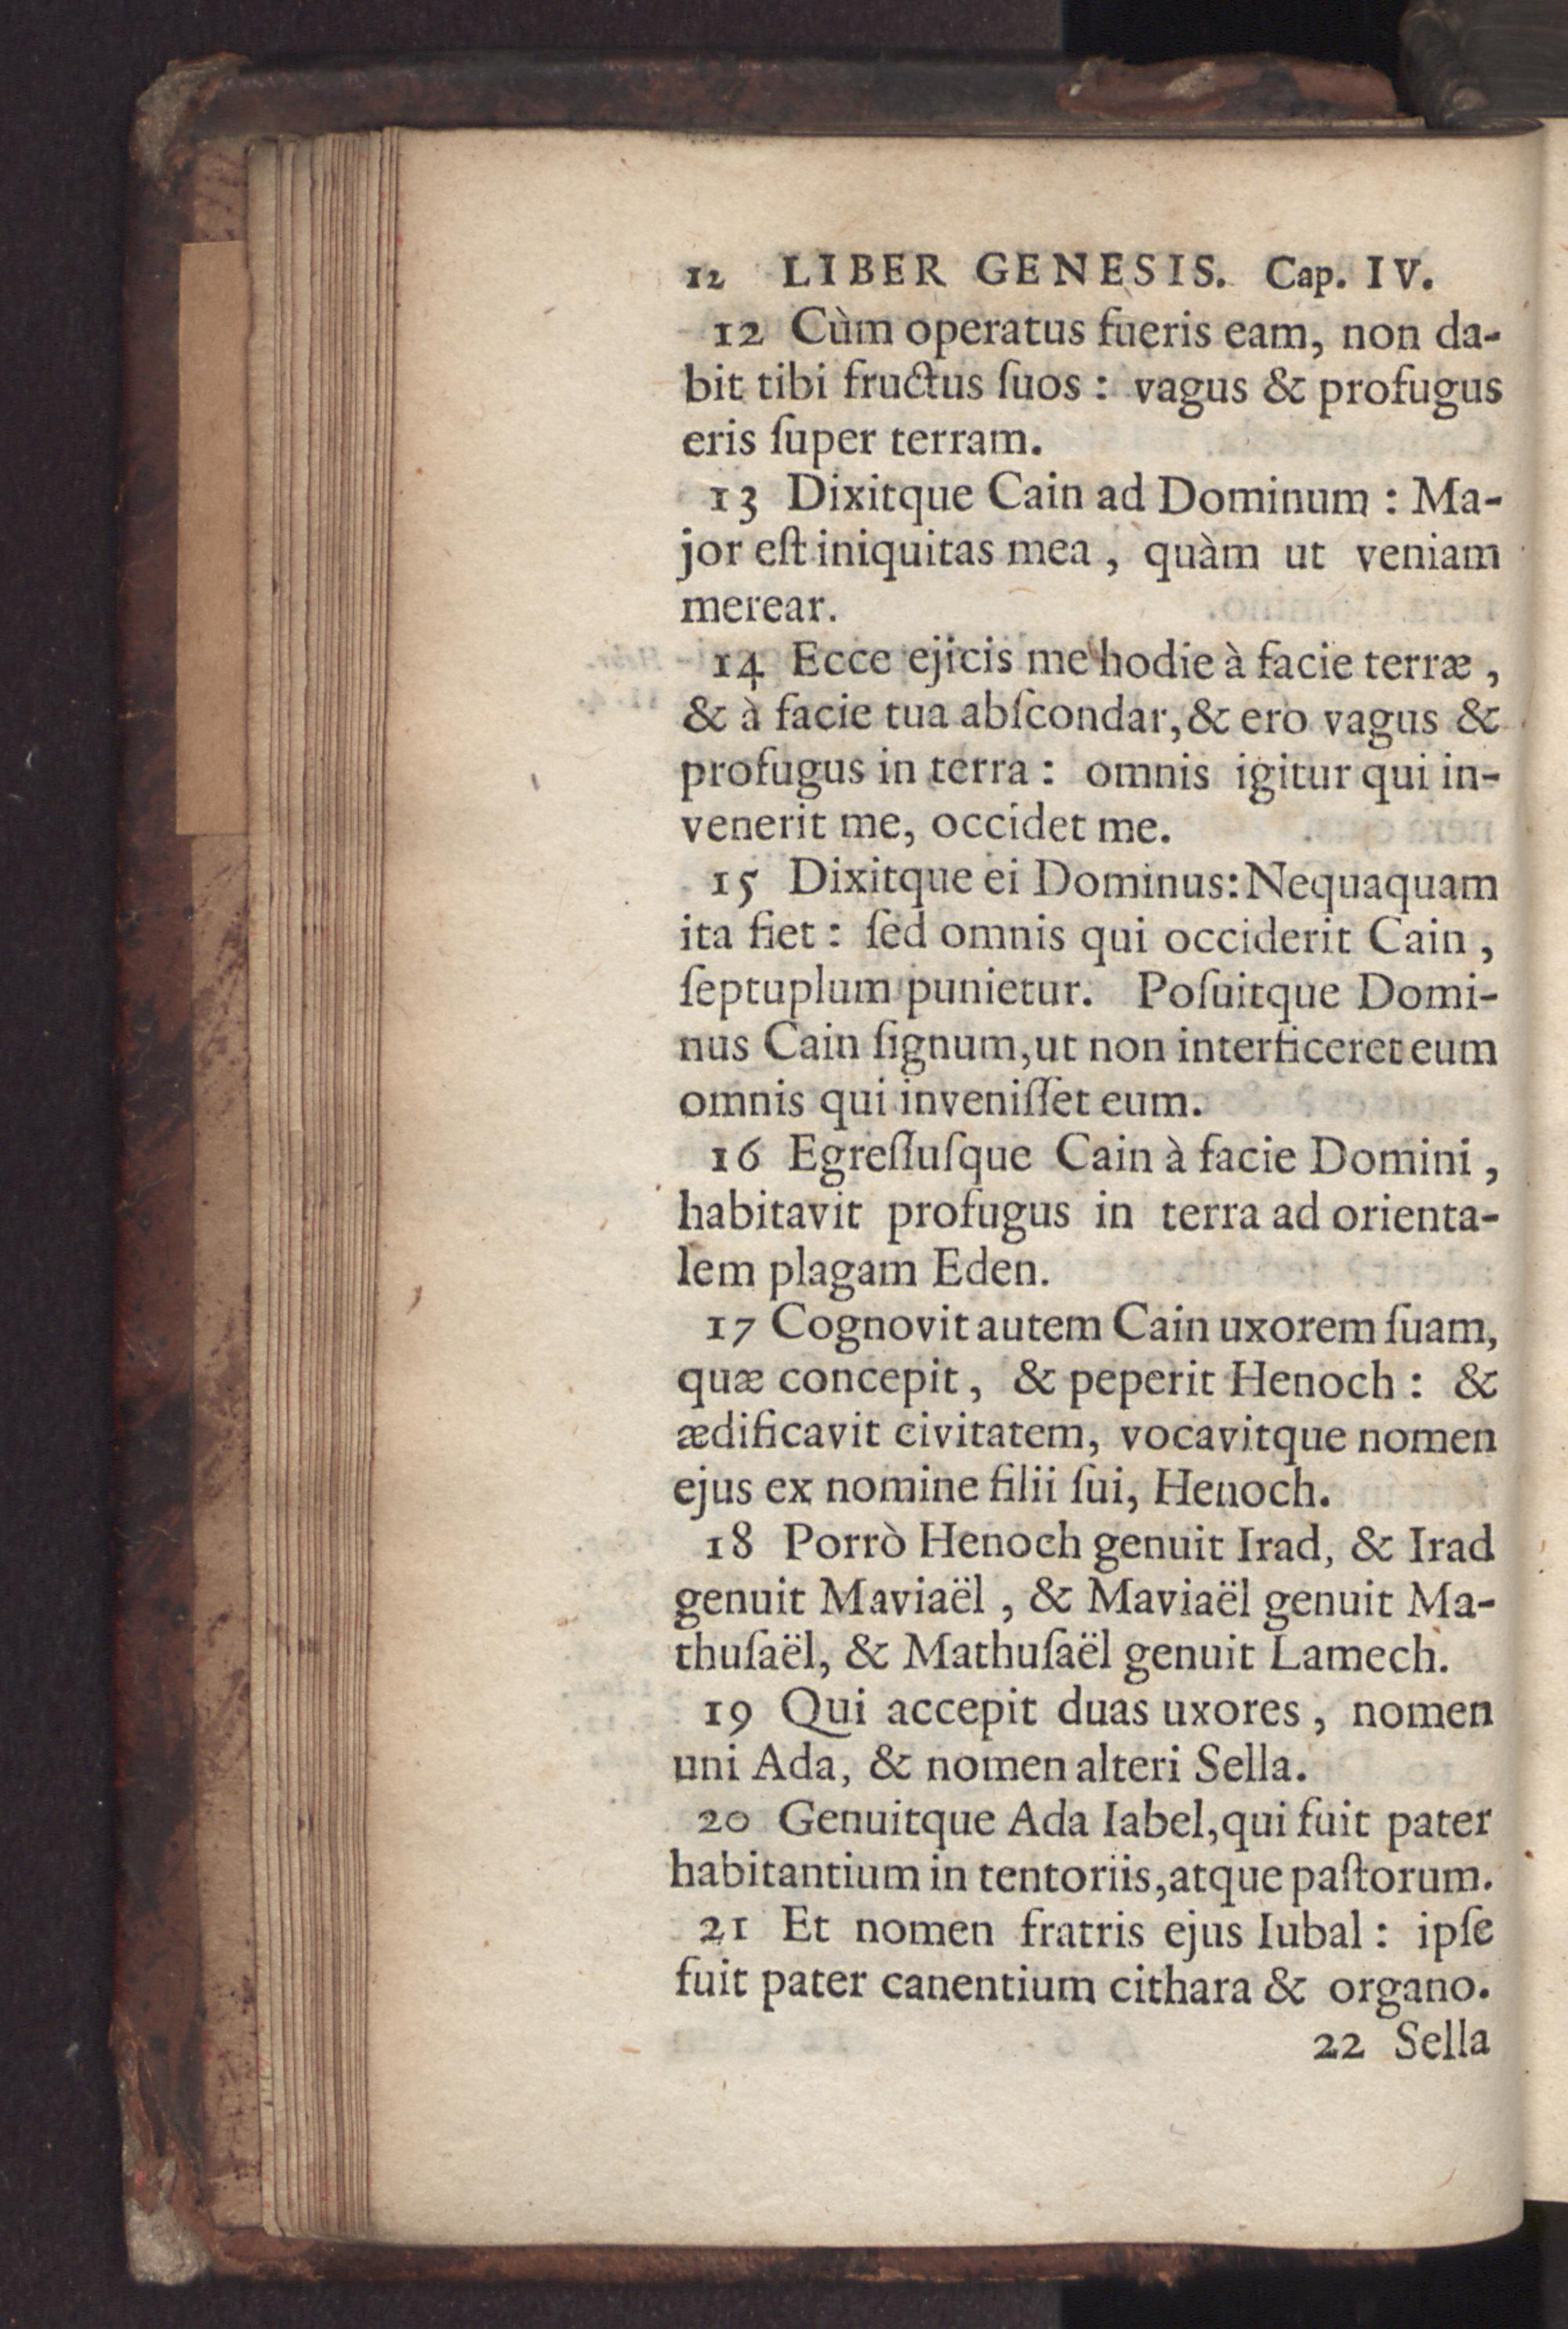 12 LIBER GENESIS. Cap. IV.
12 Cùm operatus fueris eam, non da-
bit tibi fructus ſuos : vagus & profugus
eris ſuper terram.
13 Dixitque Cain ad Dominum : Ma-
jor eſt iniquitas mea , quàm ut veniam
merear.
14 Ecce ejicis me hodie à facie terræ ,
& à facie tua abſcondar, & ero vagus &
profugus in terra : omnis igitur qui in-
venerit me, occidet me.
15 Dixitque ei Dominus: Nequaquam
ita fiet : ſed omnis qui occiderit Cain ,
ſeptuplum punietur. Poſuitque Domi-
nus Cain ſignum, ut non interficeret eum
omnis qui inveniſſet eum.
16 Egreſſuſque Cain à facie Domini ,
habitavit profugus in terra ad orienta-
lem plagam Eden.
17 Cognovit autem Cain uxorem ſuam,
quæ concepit , & peperit Henoch : &
ædificavit civitatem, vocavitque nomen
ejus ex nomine filii ſui, Henoch.
18 Porrò Henoch genuit Irad, & Irad
genuit Maviaël , & Maviaël genuit Ma-
thuſaël, & Mathuſaël genuit Lamech.
19 Qui accepit duas uxores , nomen
uni Ada, & nomen alteri Sella.
20 Genuitque Ada Iabel, qui fuit pater
habitantium in tentoriis, atque paſtorum.
21 Et nomen fratris ejus Iubal : ipſe
fuit pater canentium cithara & organo.
22 Sella